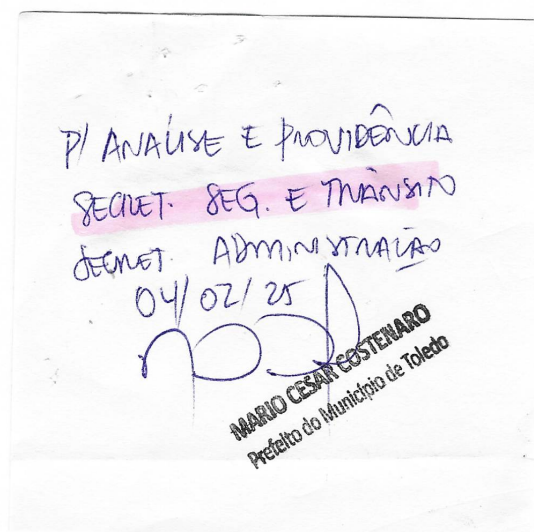 P/ ANÁLISE E PROVIDÊNCIA
SECRET. SEG. E TRÂNSITO
SECRET. ADMINISTRAÇÃO
04/02/25
MARIO CESAR COSTENARO
Prefeito do Município de Toledo